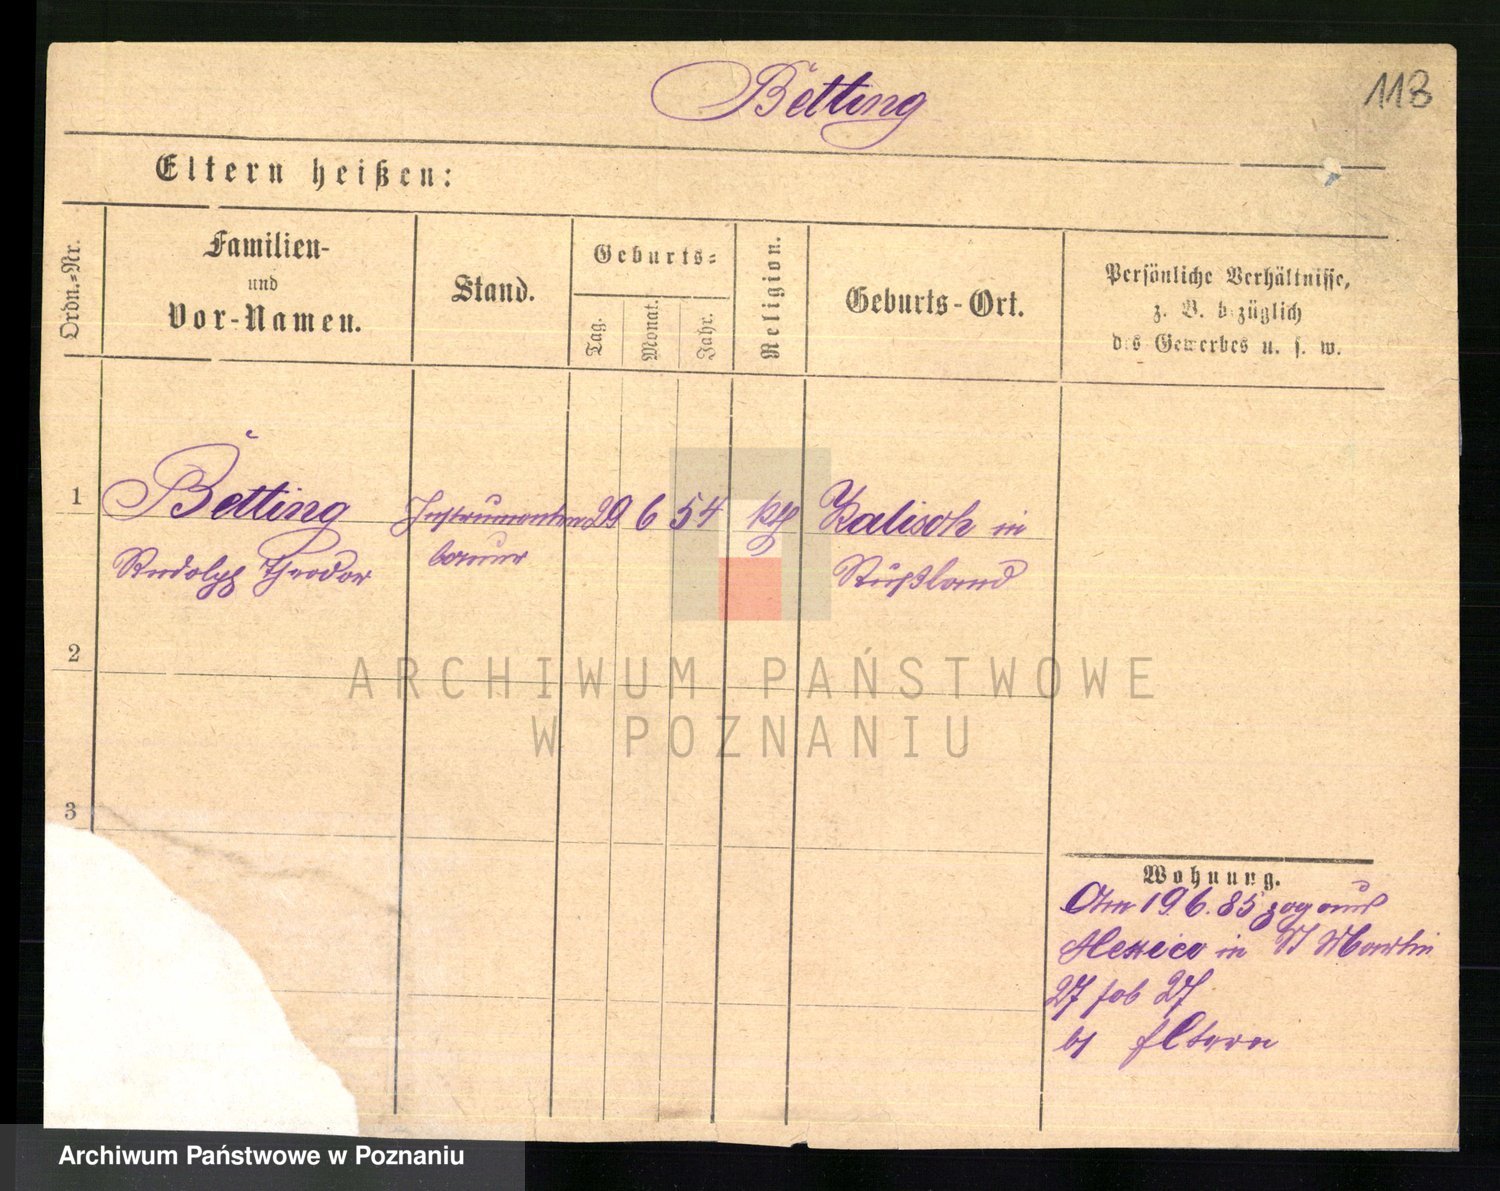 Betting
118
Eltern heißen:
Ordn.-Nr.
Familien-
und
Vor-Namen.
Stand.
Geburts-
Tag.
Monat.
Jahr.
Religion.
Geburts-Ort.
Persönliche Verhältnisse,
z. B. bezüglich
des Gewerbes u. s. w.
1
Betting
Rudolph Theodor
Instrumenten
bauer
29 6 54
kth
Kalisch in
Rußland
2
ARCHIWUM PAŃSTWOWE
W POZNANIU
3
Wohnung.
Am 19.6.85 zog aus
Mexico in St Martin
27
Eltern
Archiwum Państwowe w Poznaniu